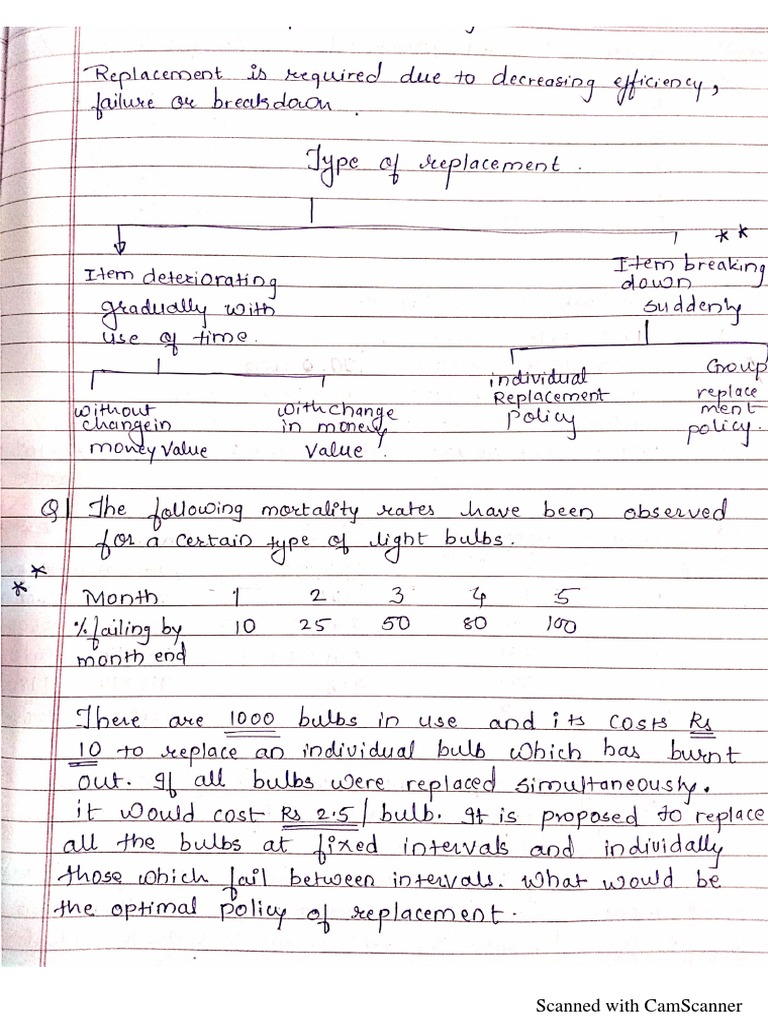 Replacement is required due to decreasing efficiency,
failure or breakdown.
Type of replacement.
Item deteriorating
gradually with
use of time.
Item breaking
down
suddenly
**
without
change in
money value
with change
in money
value
individual
Replacement
policy
Group
replace
ment
policy.
Q1 The following mortality rates have been observed
for a certain type of light bulbs.
**
Month 1 2 3 4 5
% failing by 10 25 50 80 100
month end
There are 1000 bulbs in use and its costs Rs
10 to replace an individual bulb which has burnt
out. If all bulbs were replaced simultaneously.
it would cost Rs 2.5/bulb. It is proposed to replace
all the bulbs at fixed intervals and individally
those which fail between intervals. What would be
the optimal policy of replacement.
Scanned with CamScanner